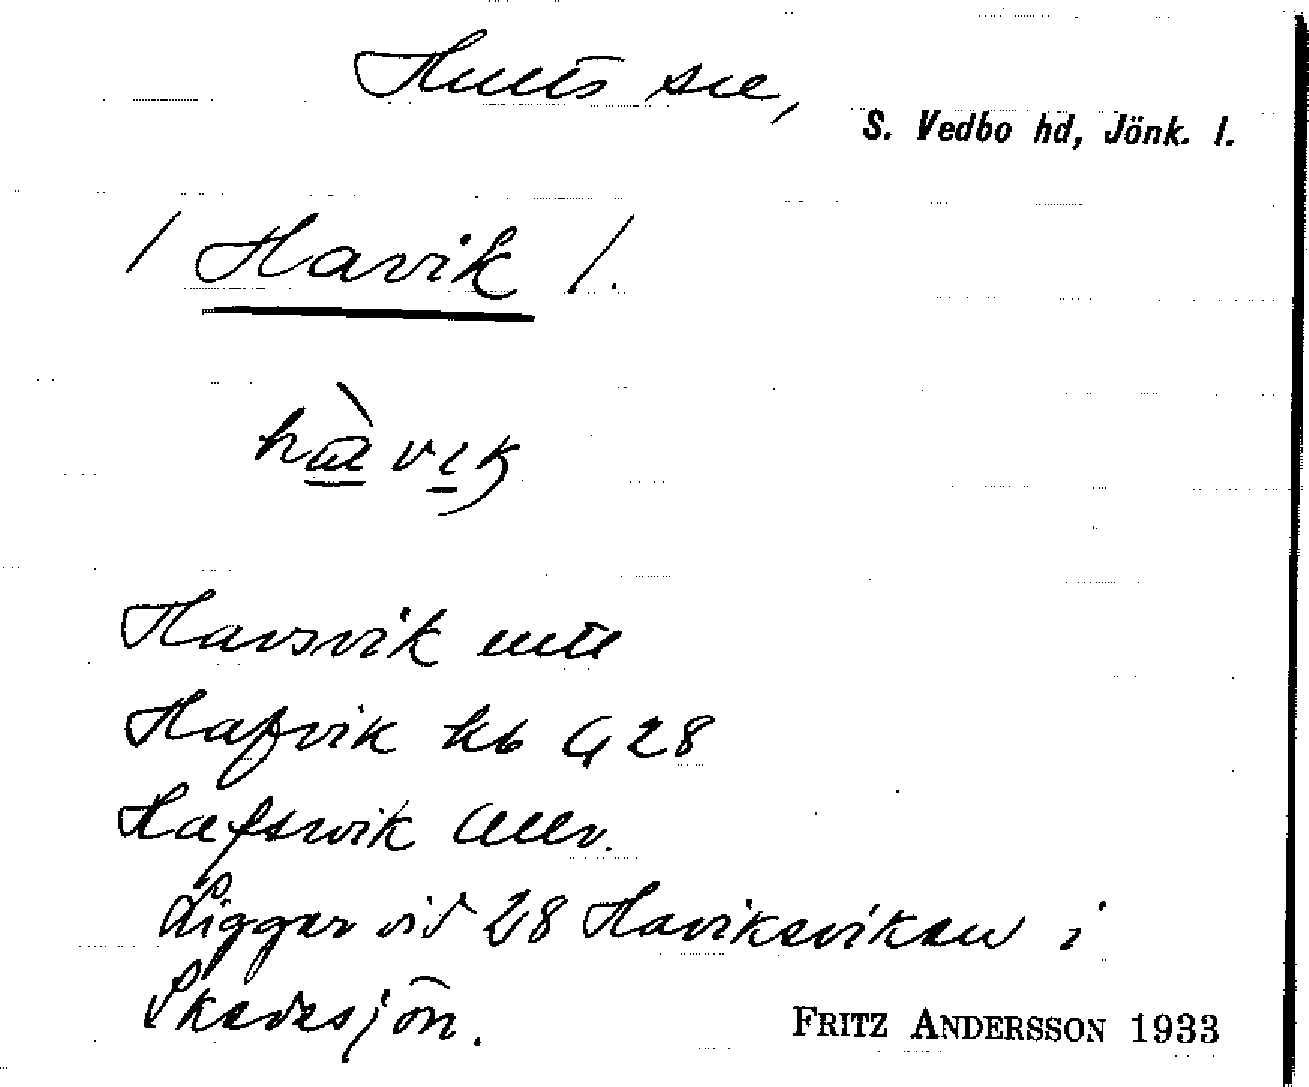 Hults sn,
S. Vedbo hd, Jönk. l.
/ Havik /.
hàvik
Havsvik
Hafvik kb G 28
Hafsvik Allm.
Ligger vid 28 Haviksviken i
Skedesjön.
FRITZ ANDERSSON 1933